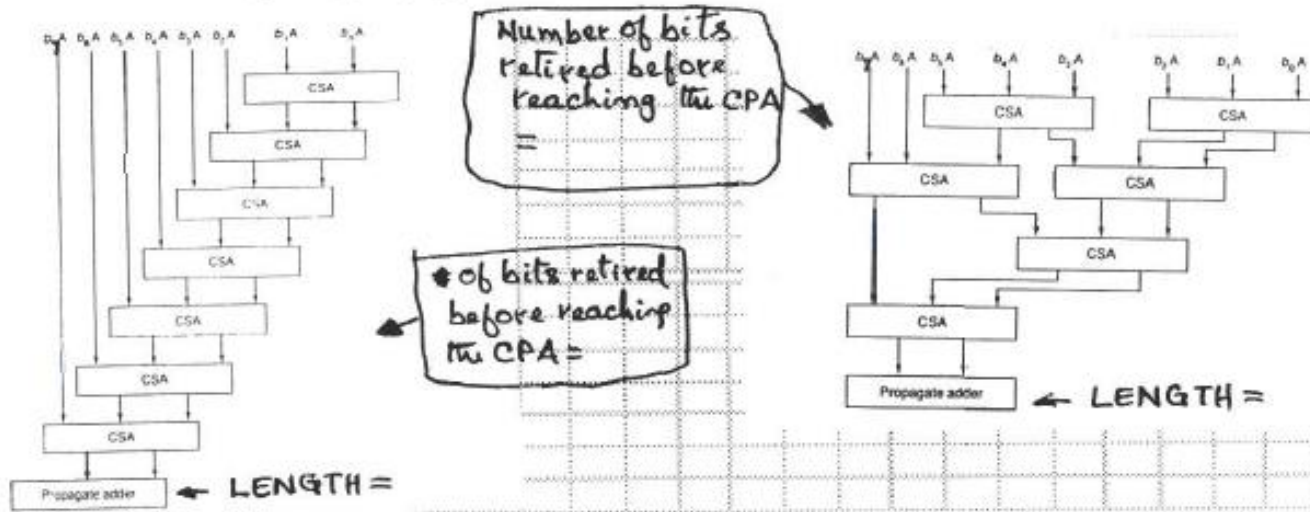 b₇A b₆A b₅A b₄A b₃A b₂A b₁A b₀A
CSA
CSA
CSA
CSA
CSA
CSA
CSA
Propagate adder
← LENGTH =
Number of bits
retired before
reaching the CPA
=
# of bits retired
before reaching
the CPA =
b₇A b₆A b₅A b₄A b₃A b₂A b₁A b₀A
CSA CSA
CSA CSA
CSA
CSA
Propagate adder
← LENGTH =